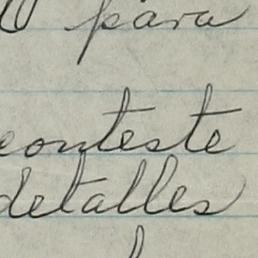 para
conteste
detalles